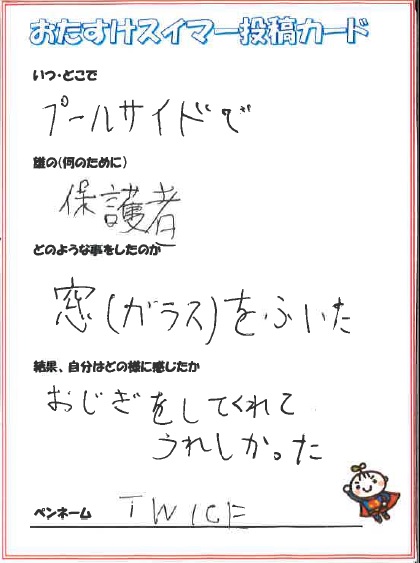 おたすけスイマー投稿カード
いつ・どこで
プールサイドで
誰の(何のために)
保護者
どのような事をしたのか
窓(ガラス)をふいた
結果、自分はどの様に感じたか
おじぎをしてくれて
うれしかった
ペンネーム TWICE